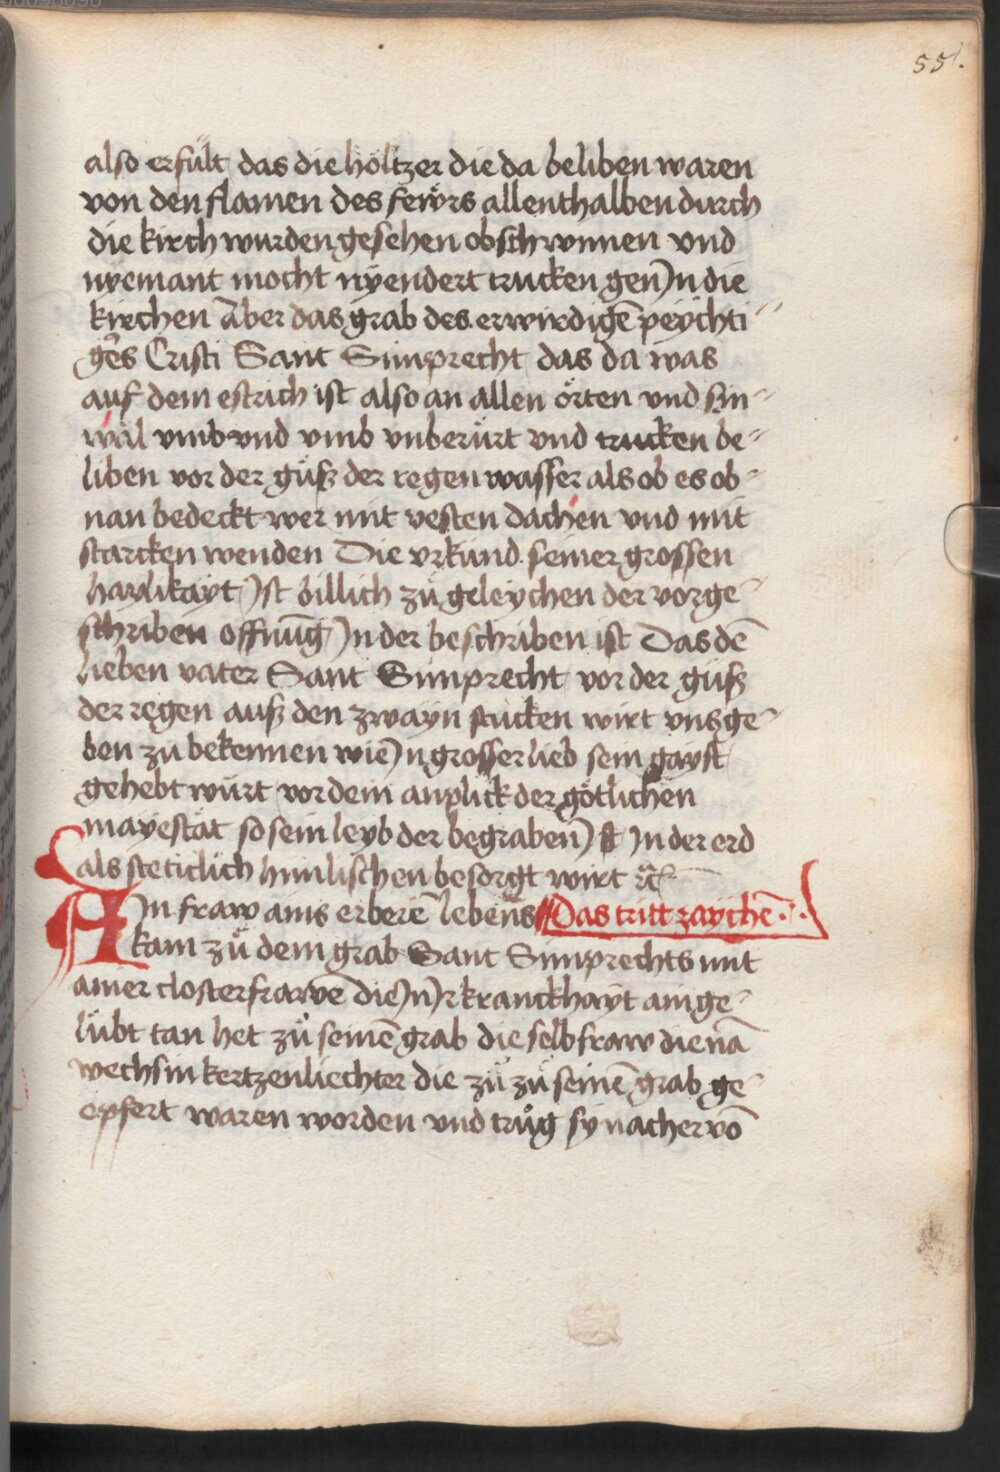 55.
also erfült das die höltzer die da beliben waren
von den flamen des fewrs allenthalben durch
die kirch wurden gesehen obschwinnen vnd
nyemant mocht nyendert trucken gen In die
kirchen Aber das grab des erwirdigē peychti
gers Cristi Sant Simprecht das da was
auf dem estrich ist also an allen örten vnd sin
wäl vmb vnd vmb vnberürt vnd trucken be
liben vor der güsß der regen wasser als ob es ob
nan bedeckt wer mit vesten dachen vnd mit
starcken wenden Die vrkünd seiner grossen
haylikayt Ist billich zů geleychen der vorge
schriben offnūg In der beschriben ist Das dē
lieben vater Sant Simprecht vor der güsß
der regen auß den zwayn stücken wirt vns ge
ben zu bekennen wie In grosser lieb sein gayst
gehebt würt vor dem anplick der götlichen
mayestät so sein leyb der begraben Ist In der erd
als steticlich himlischen besorgt wirt ꝛc
AIn fraw ains erberē lebens Das tritt zaychē
kam zů dem grab Sant Simprechts mit
ainer closterfrawē die In Ir kranckhayt ain ge
lübt tan het zů seinē grab die selb fraw die nā
wechsin kertzen liechter die zů zů seinē grab ge
opfert waren worden vnd trůg sy nacher vō